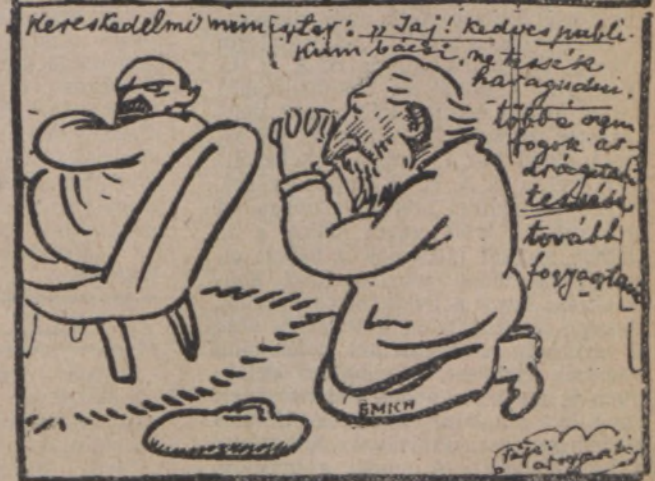 Kereskedelmi miniszter: „Jaj! kedves publi-
kum bácsi, ne tessék
haragudni.
többé nem
fogok ár-
drágítak
tessék
tovább
fogyasztani
SMICH